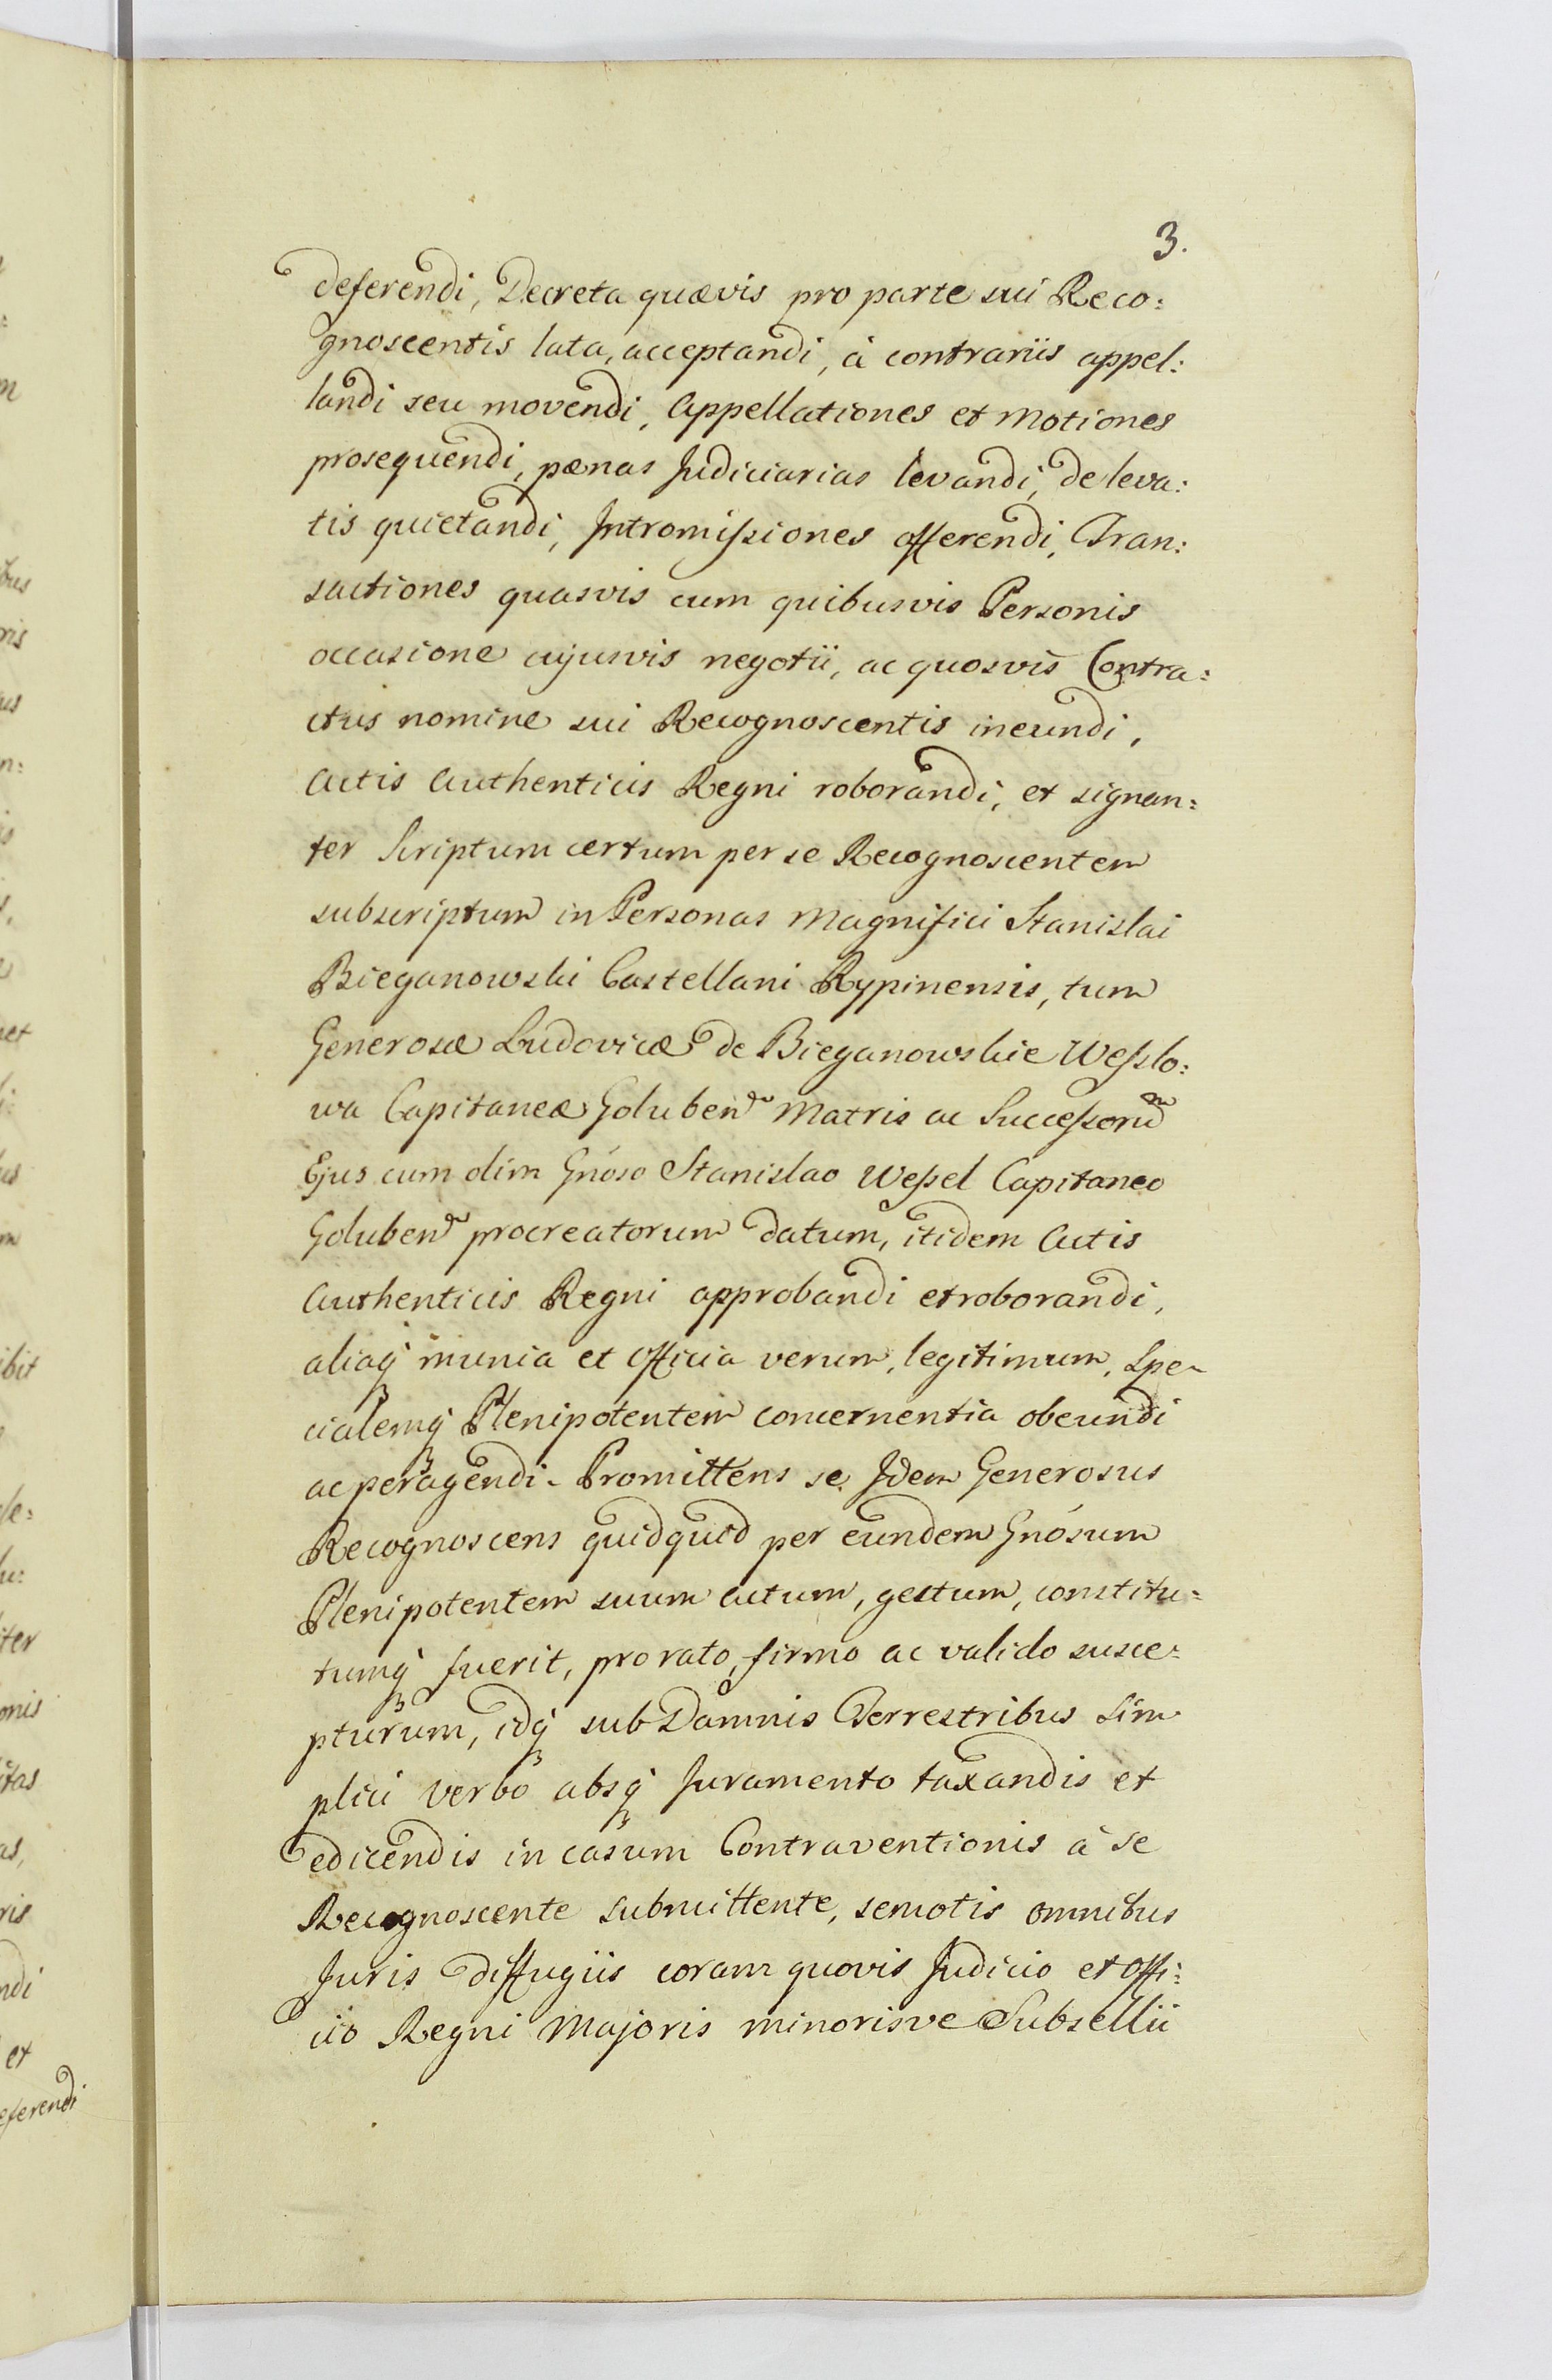 3.
deferendi, Decreta quævis pro parte sui Reco:
gnoscentis lata, acceptandi, à contrariis appel:
landi seu movendi, Appellationes et Motiones
prosequendi, pænas Judiciarias levandi, de leva:
tis quietandi, Intromissiones offerendi, Tran:
sactiones quasvis cum quibusvis Personis
occasione cujusvis negotii, ac quosvis Contra:
ctus nomine sui Recognoscentis ineundi,
Actis Authenticis Regni roborandi, et signan:
ter Scriptum certum per se Recognoscentem
subscriptum in Personas Magnifici Stanislai
Bieganowski Castellani Rypinensis, tum
Generosæ Ludovicæ de Bieganowskie Wesslo:
wa Capitaneæ Goluben Matris ac Successorũ
Ejus cum olim Gnóso Stanislao Wessel Capitaneo
Goluben procreatorum datum, itidem Actis
Authenticis Regni approbandi et roborandi,
aliaq́ munia et officia verum, legitimum, Spe
cialemq́ Plenipotentem concernentia obeundi
ac peragendi. Promittens se Idem Generosus
Recognoscens quidquid per eundem Gnósum
Plenipotentem suum actum, gestum, constitu:
tumq́ fuerit, pro rato, firmo ac valido susce:
pturum, idq́ sub Damnis Terrestribus Sim
plici verbo absq́ Juramento taxandis et
edicendis in casum Contraventionis à se
Recognoscente submittente, semotis omnibus
Juris diffugiis coram quovis Judicio et Offi:
cio Regni Majoris minorisve Subsellii